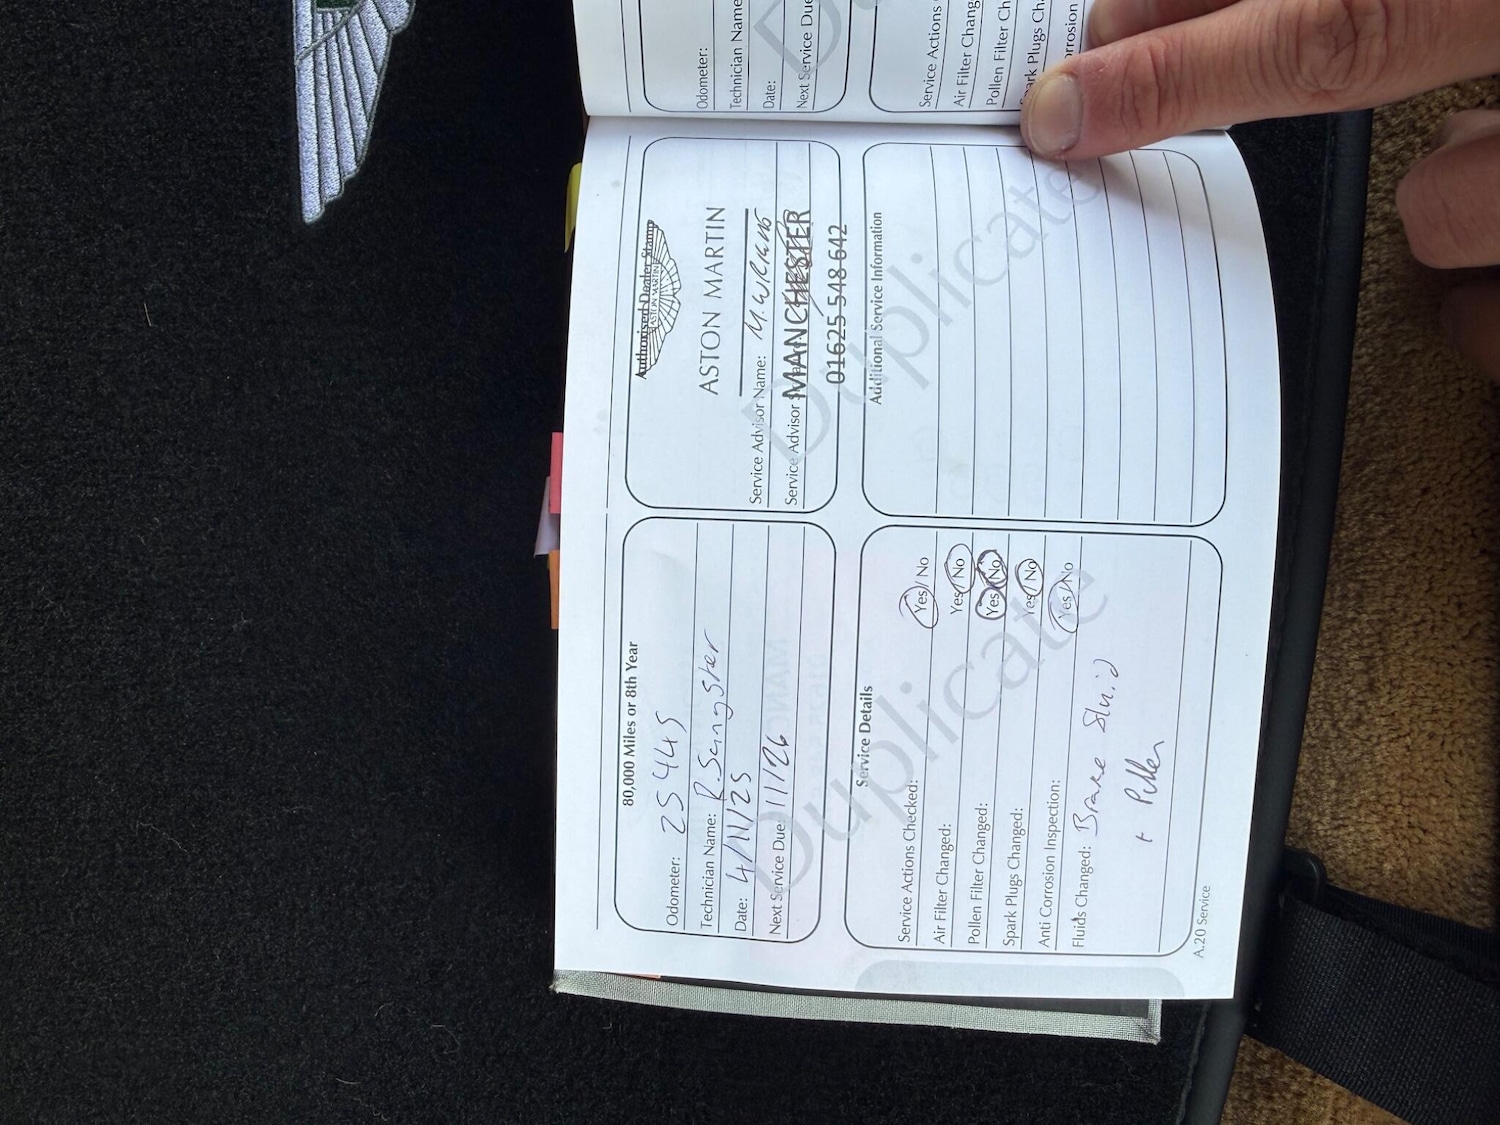 Odometer:
Technician Name
Date:
Next Service Due
Service Actions
Air Filter Chang
Pollen Filter Ch
Spark Plugs Cha
orrosion
80,000 Miles or 8th Year
Odometer: 25445
Technician Name: R. Sangster
Date: 4/11/25
Next Service Due: 11/26
Authorised Dealer Stamp
ASTON MARTIN
ASTON MARTIN
Service Advisor Name: M. WRIGHT
Service Advisor
MANCHESTER
01625 548 642
Service Details
Service Actions Checked: Yes / No
Air Filter Changed: Yes / No
Pollen Filter Changed: Yes / No
Spark Plugs Changed: Yes / No
Anti Corrosion Inspection: Yes / No
Fluids Changed: Brake Fluid
+ Pollen
Additional Service Information
A.20 Service
Duplicate
Duplicate
Duplicate
Duplicate